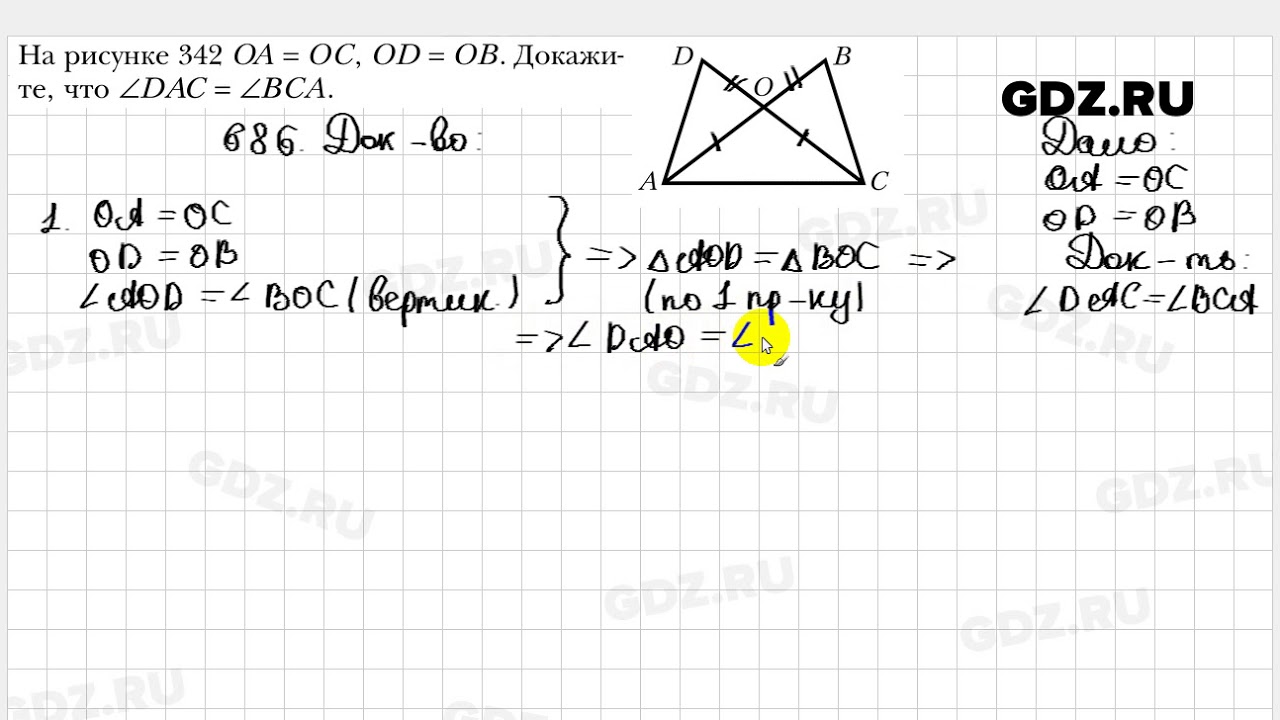 На рисунке 342 OA = OC, OD = OB. Докажи-
те, что ∠DAC = ∠BCA.
686. Док-во:
D
B
O
A
C
GDZ.RU
Дано:
OA = OC
OD = OB
Док-ть:
∠DAC = ∠BCA
1. OA = OC
OD = OB
∠AOD = ∠BOC (вертик.)
=> △AOD = △BOC =>
(по 1 пр-ку)
=> ∠DAO = ∠
GDZ.RU
GDZ.RU
GDZ.RU
GDZ.RU
GDZ.RU
GDZ.RU
GDZ.RU
GDZ.RU
GDZ.RU
GDZ.RU
GDZ.RU